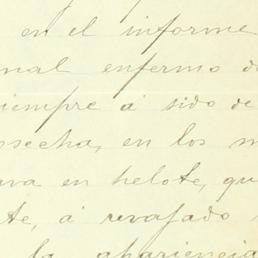 en el informe
nal enfermo d
siempre á sido de
osecha, en los m
ava en helote, qu
te, á revajado
la apariencia